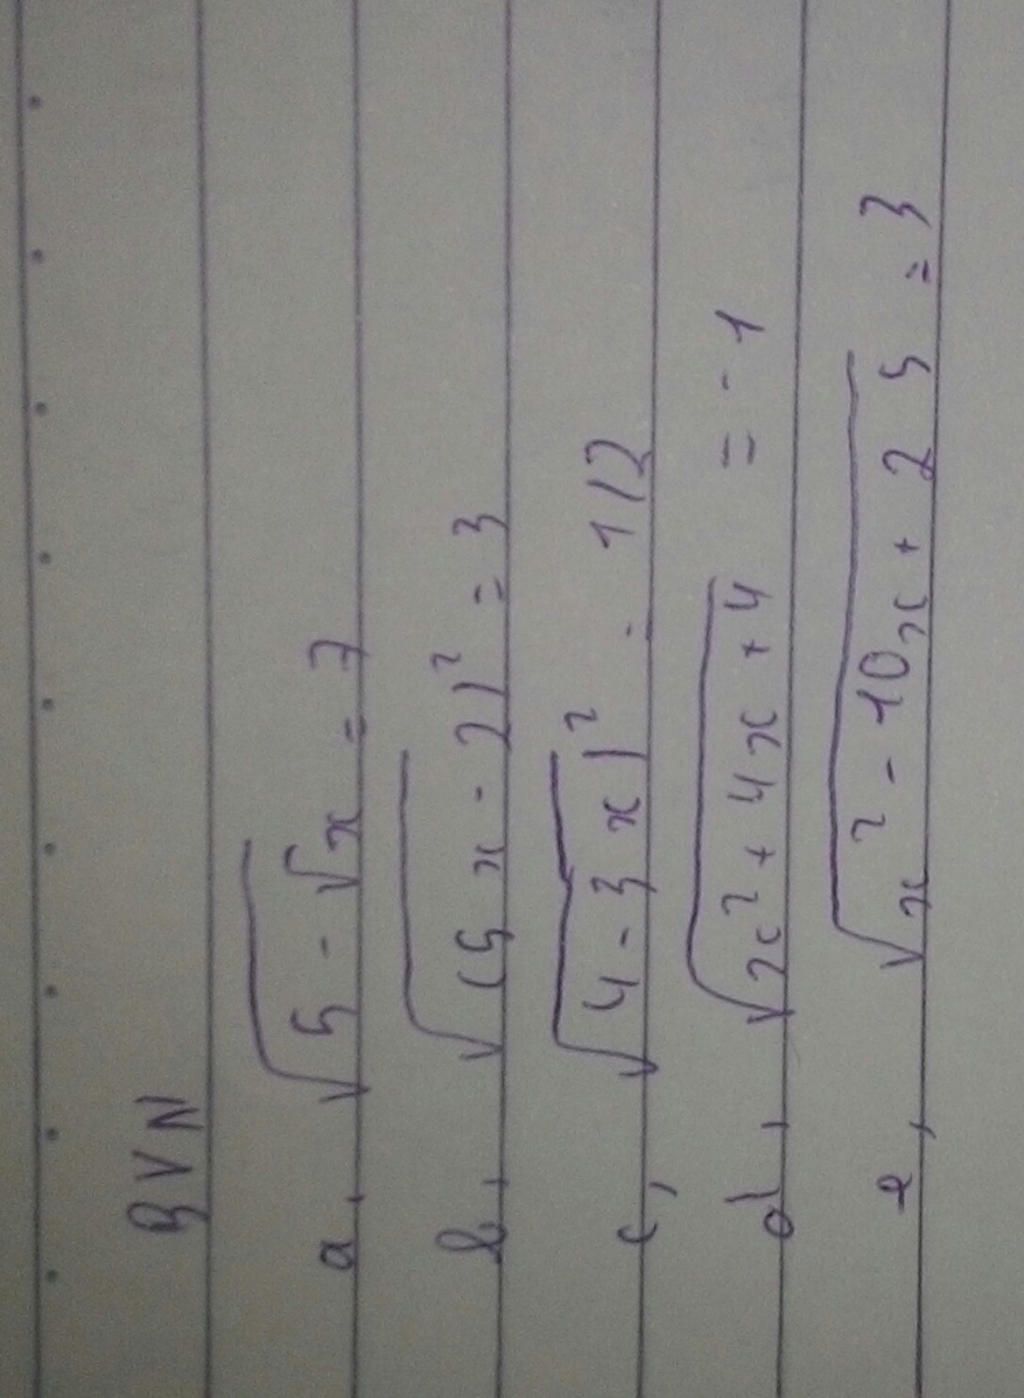 BVN
a, √5 - √x = 7
b, √(5x - 2)² = 3
c, √4 - 3x)² = 1/2
d, √x² + 4x + 4 = - 1
e, √x² - 10x + 25 = 3